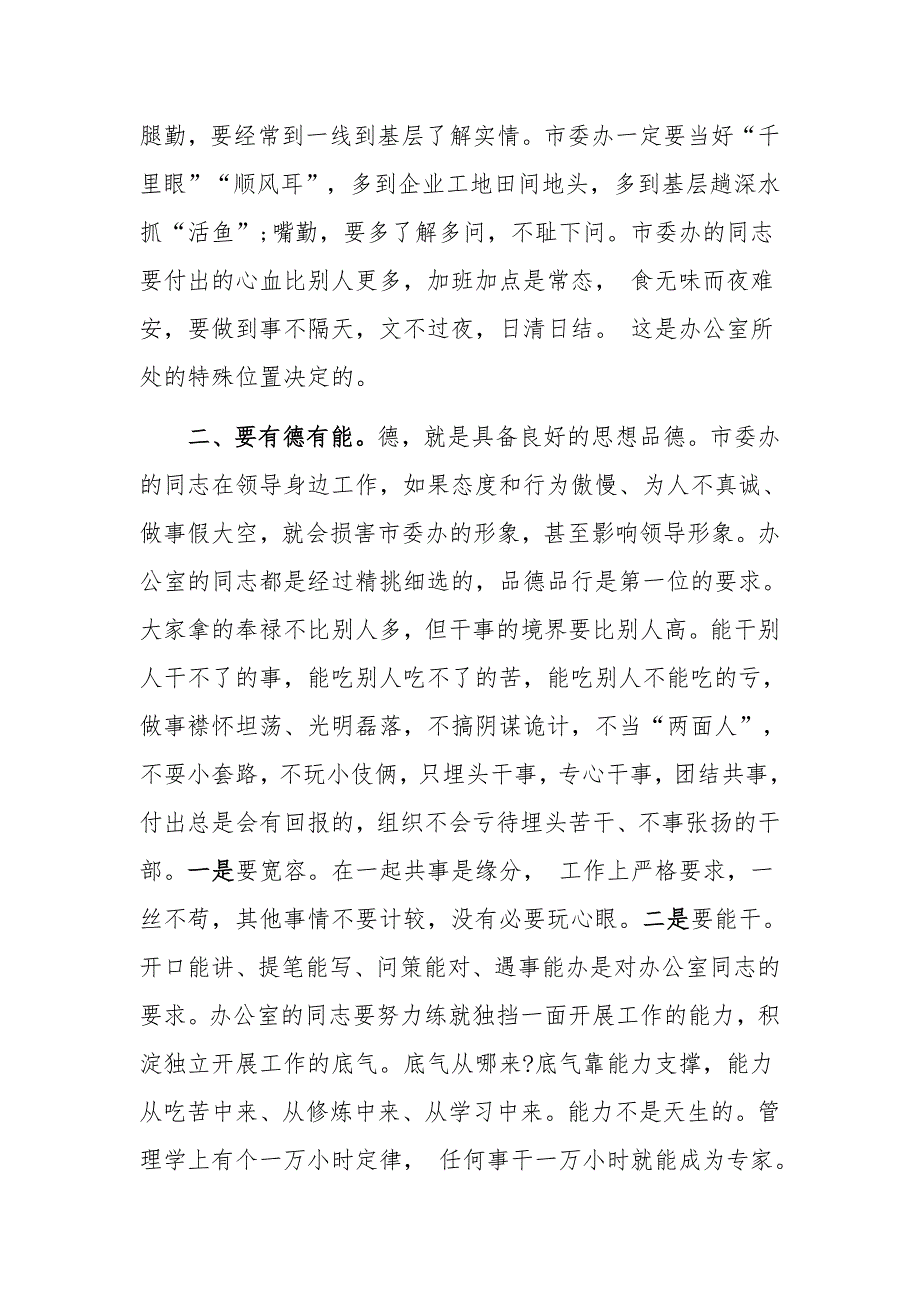 腿勤，要经常到一线到基层了解实情。市委办一定要当好“千
里眼”“顺风耳”，多到企业工地田间地头，多到基层趟深水
抓“活鱼”;嘴勤，要多了解多问，不耻下问。市委办的同志
要付出的心血比别人更多，加班加点是常态， 食无味而夜难
安，要做到事不隔天，文不过夜，日清日结。 这是办公室所
处的特殊位置决定的。
二、要有德有能。德，就是具备良好的思想品德。市委办
的同志在领导身边工作，如果态度和行为傲慢、为人不真诚、
做事假大空，就会损害市委办的形象，甚至影响领导形象。办
公室的同志都是经过精挑细选的，品德品行是第一位的要求。
大家拿的奉禄不比别人多，但干事的境界要比别人高。能干别
人干不了的事，能吃别人吃不了的苦，能吃别人不能吃的亏，
做事襟怀坦荡、光明磊落，不搞阴谋诡计，不当“两面人”，
不耍小套路，不玩小伎俩，只埋头干事，专心干事，团结共事，
付出总是会有回报的，组织不会亏待埋头苦干、不事张扬的干
部。一是要宽容。在一起共事是缘分， 工作上严格要求，一
丝不苟，其他事情不要计较，没有必要玩心眼。二是要能干。
开口能讲、提笔能写、问策能对、遇事能办是对办公室同志的
要求。办公室的同志要努力练就独挡一面开展工作的能力，积
淀独立开展工作的底气。底气从哪来?底气靠能力支撑，能力
从吃苦中来、从修炼中来、从学习中来。能力不是天生的。管
理学上有个一万小时定律， 任何事干一万小时就能成为专家。